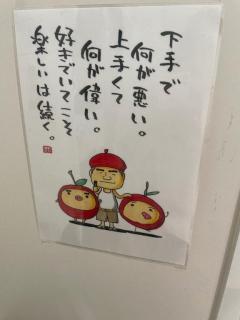 下手で
何が悪い。
上手くて
何が偉い。
好きでいてこそ
楽しいは続く。